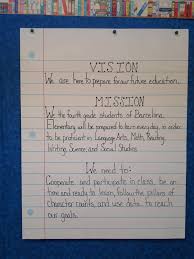 VISION
We are here to prepare for our future education.
MISSION
We the fourth grade students of Barcelona
Elementary will be prepared to learn every day, in order
to be proficient in Language Arts, Math, Reading,
Writing, Science, and Social Studies.
We need to:
Cooperate and participate in class, be on
time and ready to learn, follow the pillars of
character counts, and use data to reach
our goals.